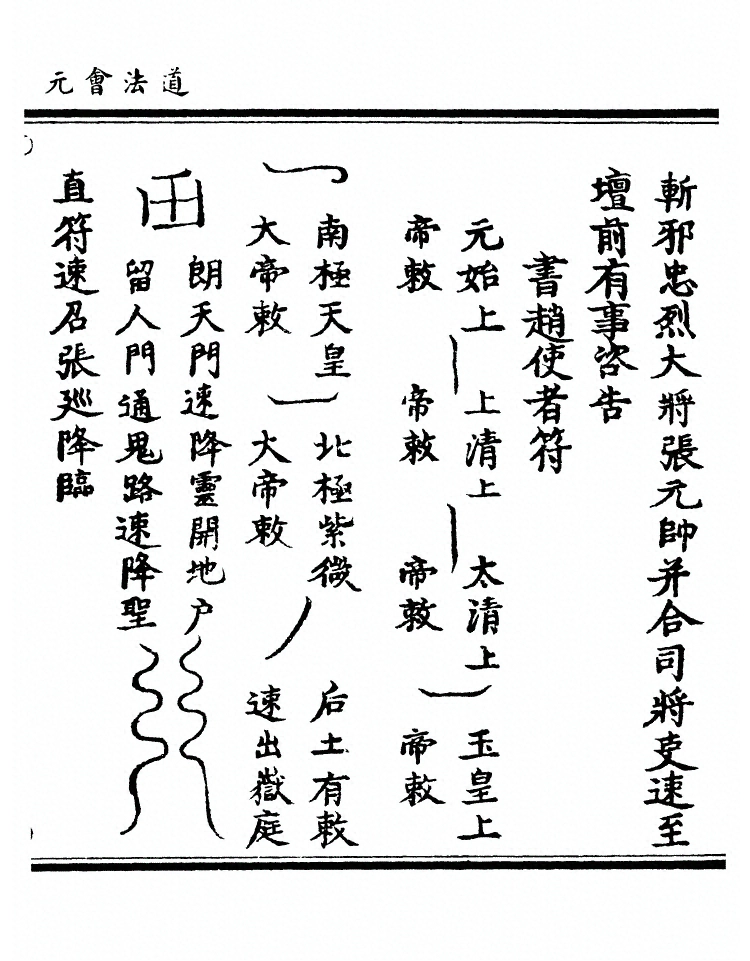 道法會元
斬邪忠烈大將張元帥并合司將吏速至
壇前有事咨告
書趙使者符
元始上帝敕
上清上帝敕
太清上帝敕
玉皇上帝敕
南極天皇大帝敕
北極紫微大帝敕
后土有敕速出嶽庭
朗天門速降靈開地户
留人門通鬼路速降聖
直符速召張廵降臨